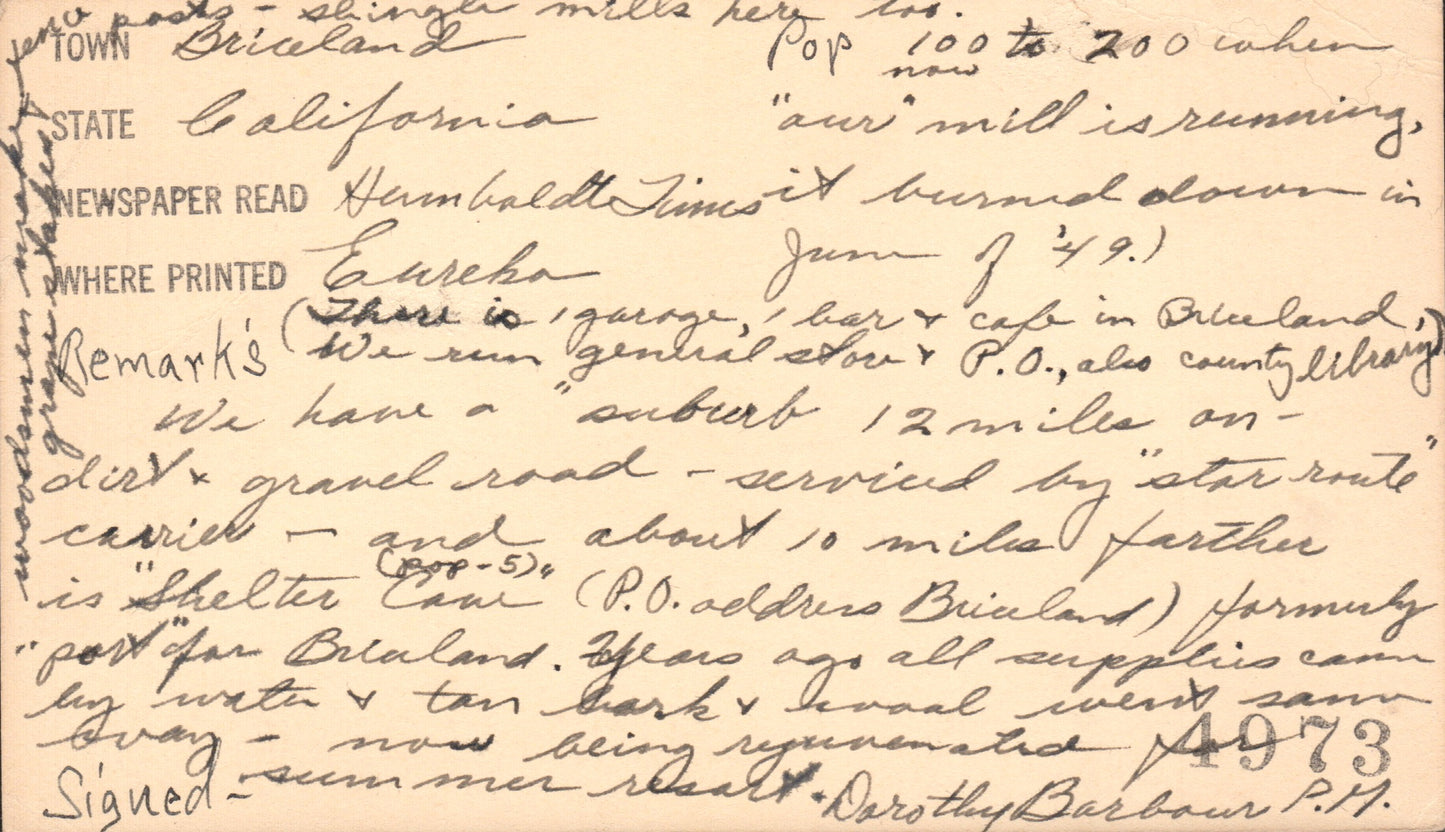 posts - shingle mills here too.
TOWN Briceland
Pop 100 to 200 when
now
STATE California
"our" mill is running,
NEWSPAPER READ Humboldt Times
it burned down in
WHERE PRINTED Eureka
June of '49.)
Remark's (There is 1 garage, 1 bar & cafe in Briceland,
We run general store & P.O., also county library)
We have a "suburb 12 miles on-
dirt & gravel road - serviced by "star route"
carrier - and about 10 miles farther
(pop-5)
is "Shelter Cove" (P.O. address Briceland) formerly
"port" for Briceland. Years ago all supplies came
by water & tan bark & wool went same
way - now being rejuvenated for
4973
summer resort.
Signed - Dorothy Barbour P.M.
woodsmen make fence
grape stakes &